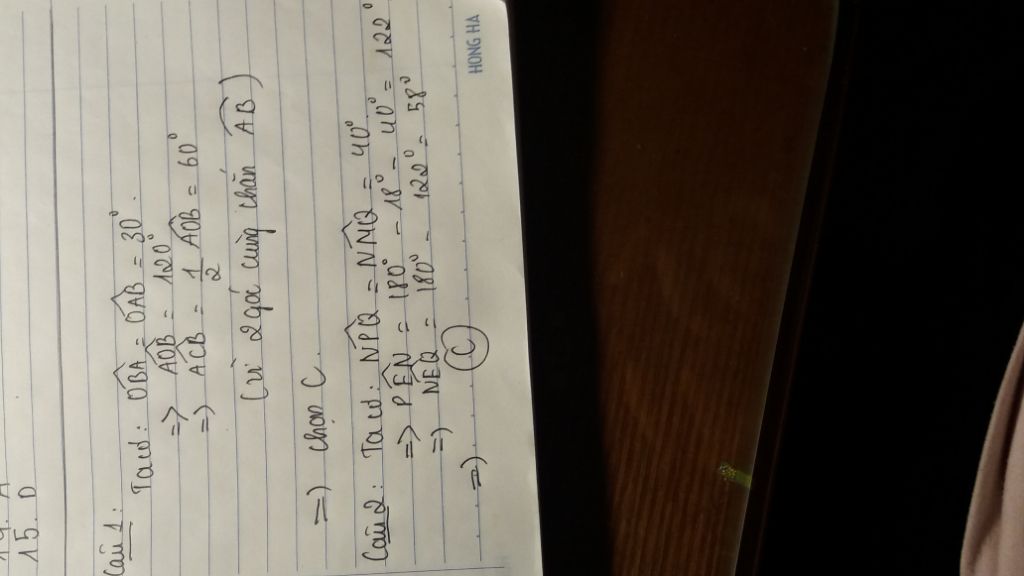 14. A
15. D
Câu 1:
Ta có: OBA = OAB = 30°.
=> AOB = 120°
=> ACB = 1/2 AOB = 60°
(vì 2 góc cùng chắn AB)
=> chọn C.
Câu 2: Ta có: NPQ = NNQ = 40°
=> PEN = 180° - 18° - 40° = 122°
=> NEQ = 180° - 122° = 58°
=> C
HONG HA